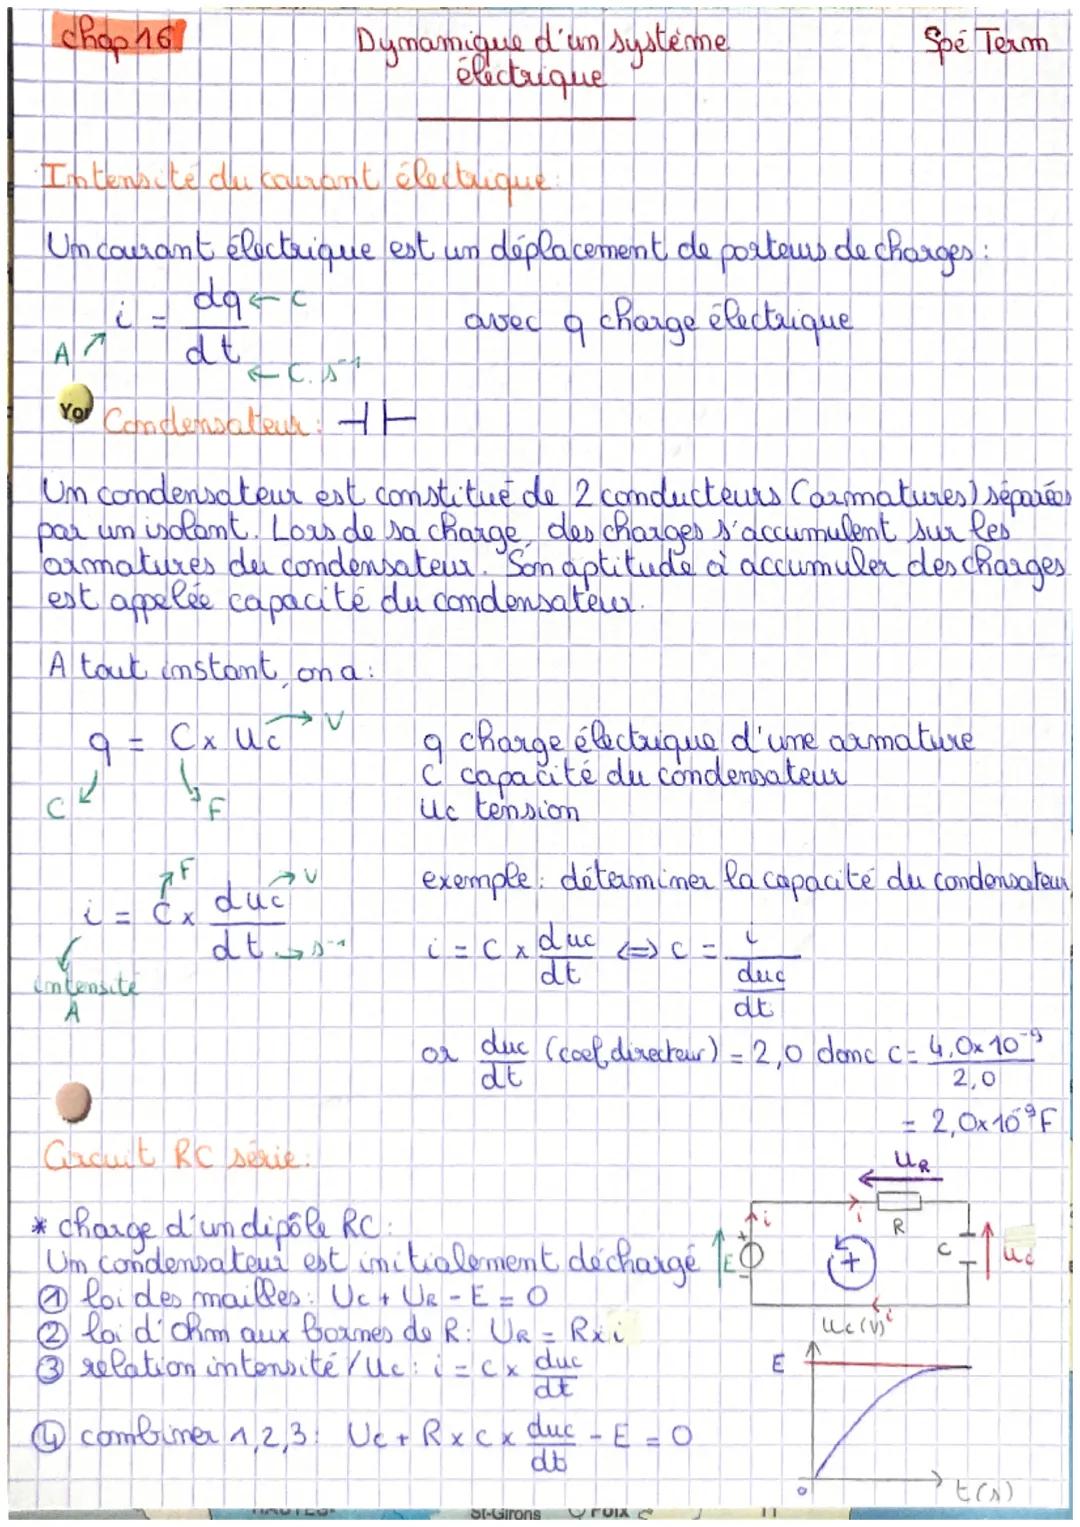 chap 16
Dynamique d'un système
électrique
Spé Term
Intensité du courant électrique:
Un courant électrique est un déplacement de porteurs de charges :
i = dq/dt ← C
avec q charge électrique
A
← C.s⁻¹
Yor
Condensateur :
Un condensateur est constitué de 2 conducteurs (armatures) séparées
par un isolant. Lors de sa charge, des charges s'accumulent sur les
armatures du condensateur. Son aptitude à accumuler des charges
est appelée capacité du condensateur.
A tout instant, on a :
q = C x Uc → V
C
F
q charge électrique d'une armature
C capacité du condensateur
Uc tension
F
→ V
i = C x duc/dt → s⁻¹
intensité
A
exemple : déterminer la capacité du condensateur
i = C x duc/dt ⇔ C = i/(duc/dt)
or duc/dt (coef directeur) = 2,0 donc C = 4,0x10⁻⁹/2,0
= 2,0x10⁻⁹ F
Circuit RC série :
UR
i
i
R
E
+
C
uc
i
* charge d'un dipôle RC :
Un condensateur est initialement déchargé
① loi des mailles : Uc + UR - E = 0
② loi d'Ohm aux bornes de R : UR = R x i
③ relation intensité / Uc : i = C x duc/dt
④ combiner 1,2,3 : Uc + R x C x duc/dt - E = 0
Uc (V)
E
0
t (s)
St-Girons
FOIX
11